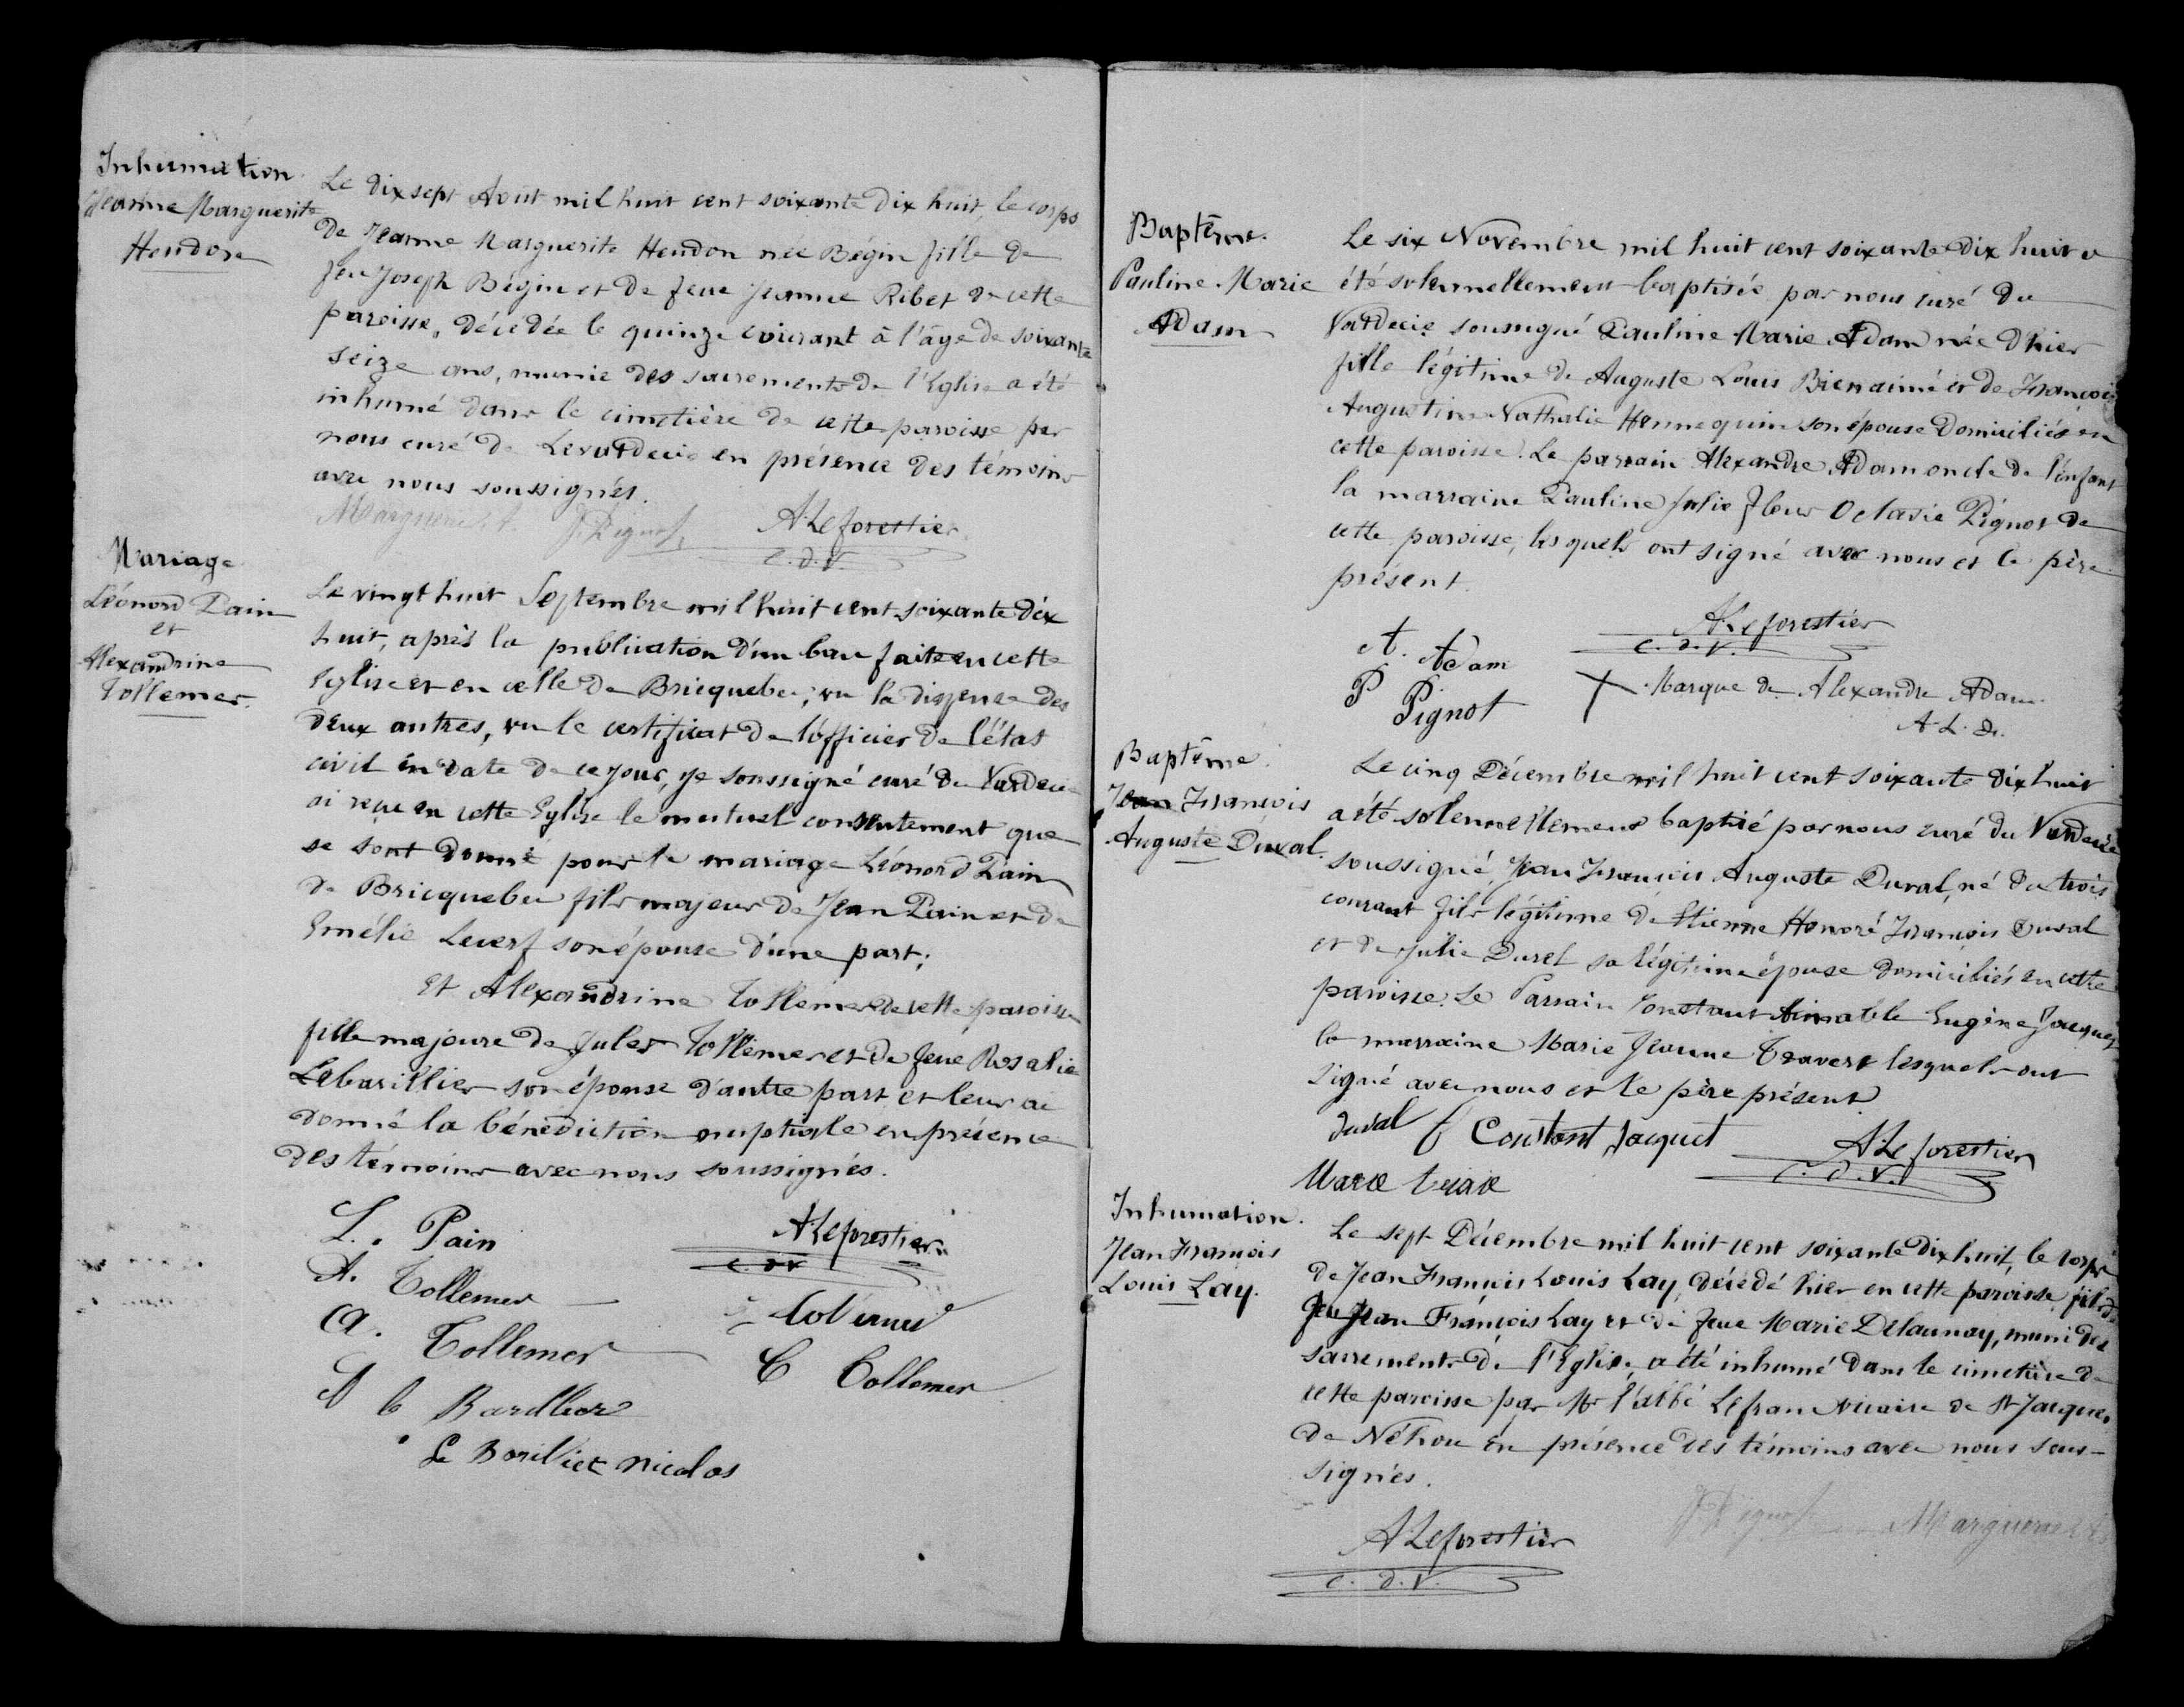 Inhumation
Jeanne Marguerite
Hendon
Le dix sept Août mil huit cent soixante dix huit, le corps
de Jeanne Marguerite Hendon née Bégin fille de
feu Joseph Bégin et de feue Jeanne Ribet de cette
paroisse, décédée le quinze courant à l'âge de soixante
seize ans, munie des sacrements de l'Eglise a été
inhumé dans le cimetière de cette paroisse par
nous curé de Levardecie en présence des témoins
avec nous soussignés.
J. Pignot A Leforestier
c. d. V.
Mariage
Léonord Pain
et
Alexandrine
Tollemer.
Le vingt huit Septembre mil huit cent soixante dix
huit, après la publication d'un ban faite en cette
Eglise et en celle de Bricquebec, vu la dispense des
deux autres, vu le certificat de l'officier de l'état
civil en date de ce jour, je soussigné curé du Vardecie
ai reçu en cette Eglise le mutuel consentement que
se sont donné pour le mariage Léonord Pain
de Bricquebec fils majeur de Jean Pain et de
Emélie Lecerf son épouse d'une part;
Et Alexandrine Tollemer de cette paroisse
fille majeure de Jules Tollemer et de feue Rosalie
Lebarillier son épouse d'autre part et leur ai
donné la bénédiction nuptiale en présence
des témoins avec nous soussignés.
L. Pain A Leforestier
c. d. V.
A. Tollemer
a. Tollemer C Tollemer
Le Barillier Nicolas
Baptême.
Pauline Marie
Adam
Le six Novembre mil huit cent soixante dix huit a
été solennellement baptisée par nous curé du
Vardecie soussigné Pauline Marie Adam née d'hier
fille légitime de Auguste Louis Bienaimé et de
Augustine Nathalie Hennequin son épouse domiciliés en
cette paroisse. Le parrain Alexandre Adam oncle de l'enfant
la marraine Pauline Julie Fleur Octavie Pignot de
cette paroisse, lesquels ont signé avec nous et le père
présent.
A. Adam A. Leforestier
c. d. V.
P Pignot X Marque de Alexandre Adam
Baptême.
Jean François
Auguste Duval.
Le cinq Décembre mil huit cent soixante dix huit
a été solennellement baptisé par nous curé du Vardecie
soussigné, Jean François Auguste Duval, né du trois
courant fils légitime de Etienne Honoré François Duval
et de Julie Durel sa légitime épouse domiciliés en cette
paroisse. Le Parrain Constant Aimable Eugène Jacquet
la marraine Marie Jeanne Travert lesquels ont
signé avec nous et le père présent
duval Constant Jacquet A Leforestier
c. d. V.
Inhumation.
Jean François
Louis Lay.
Le sept Décembre mil huit cent soixante dix huit, le corps
de Jean François Louis Lay, décédé hier en cette paroisse, fils de
feu Jean François Lay et de feue Marie Delaunay, muni des
sacrements de l'Eglise, a été inhumé dans le cimetière de
cette paroisse par Mr l'abbé Lefranc Vicaire de St Jacques
de Néhou en présence des témoins avec nous sous-
signés.
A Leforestier
c. d. V.